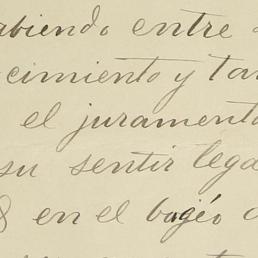 abiendo entre
cimiento y tan
el jurament
su sentir lega
en el bagéo